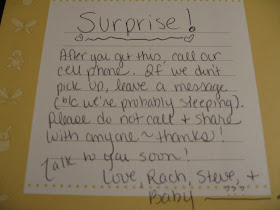 Surprise!
After you get this, call our
cell phone. If we don't
pick up, leave a message
(b/c we're probably sleeping).
Please do not call + share
with anyone ~ thanks!
Talk to you soon!
Love, Rach, Steve, +
Baby ???